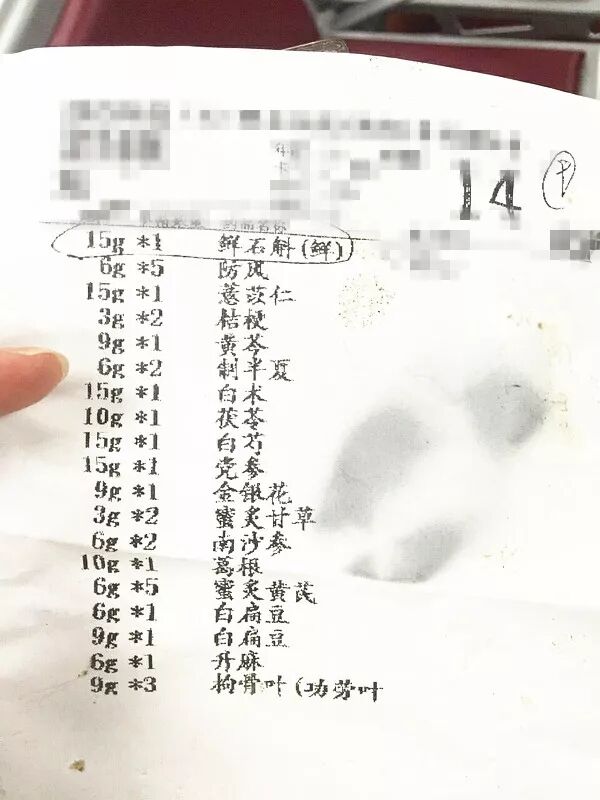 14
15g *1 鲜石斛(鲜)
6g *5 防风
15g *1 薏苡仁
3g *2 桔梗
9g *1 黄芩
6g *2 制半夏
15g *1 白术
10g *1 茯苓
15g *1 白芍
15g *1 党参
9g *1 金银花
3g *2 蜜炙甘草
6g *2 南沙参
10g *1 葛根
6g *5 蜜炙黄芪
6g *1 白扁豆
9g *1 白扁豆
6g *1 升麻
9g *3 枸骨叶(功劳叶